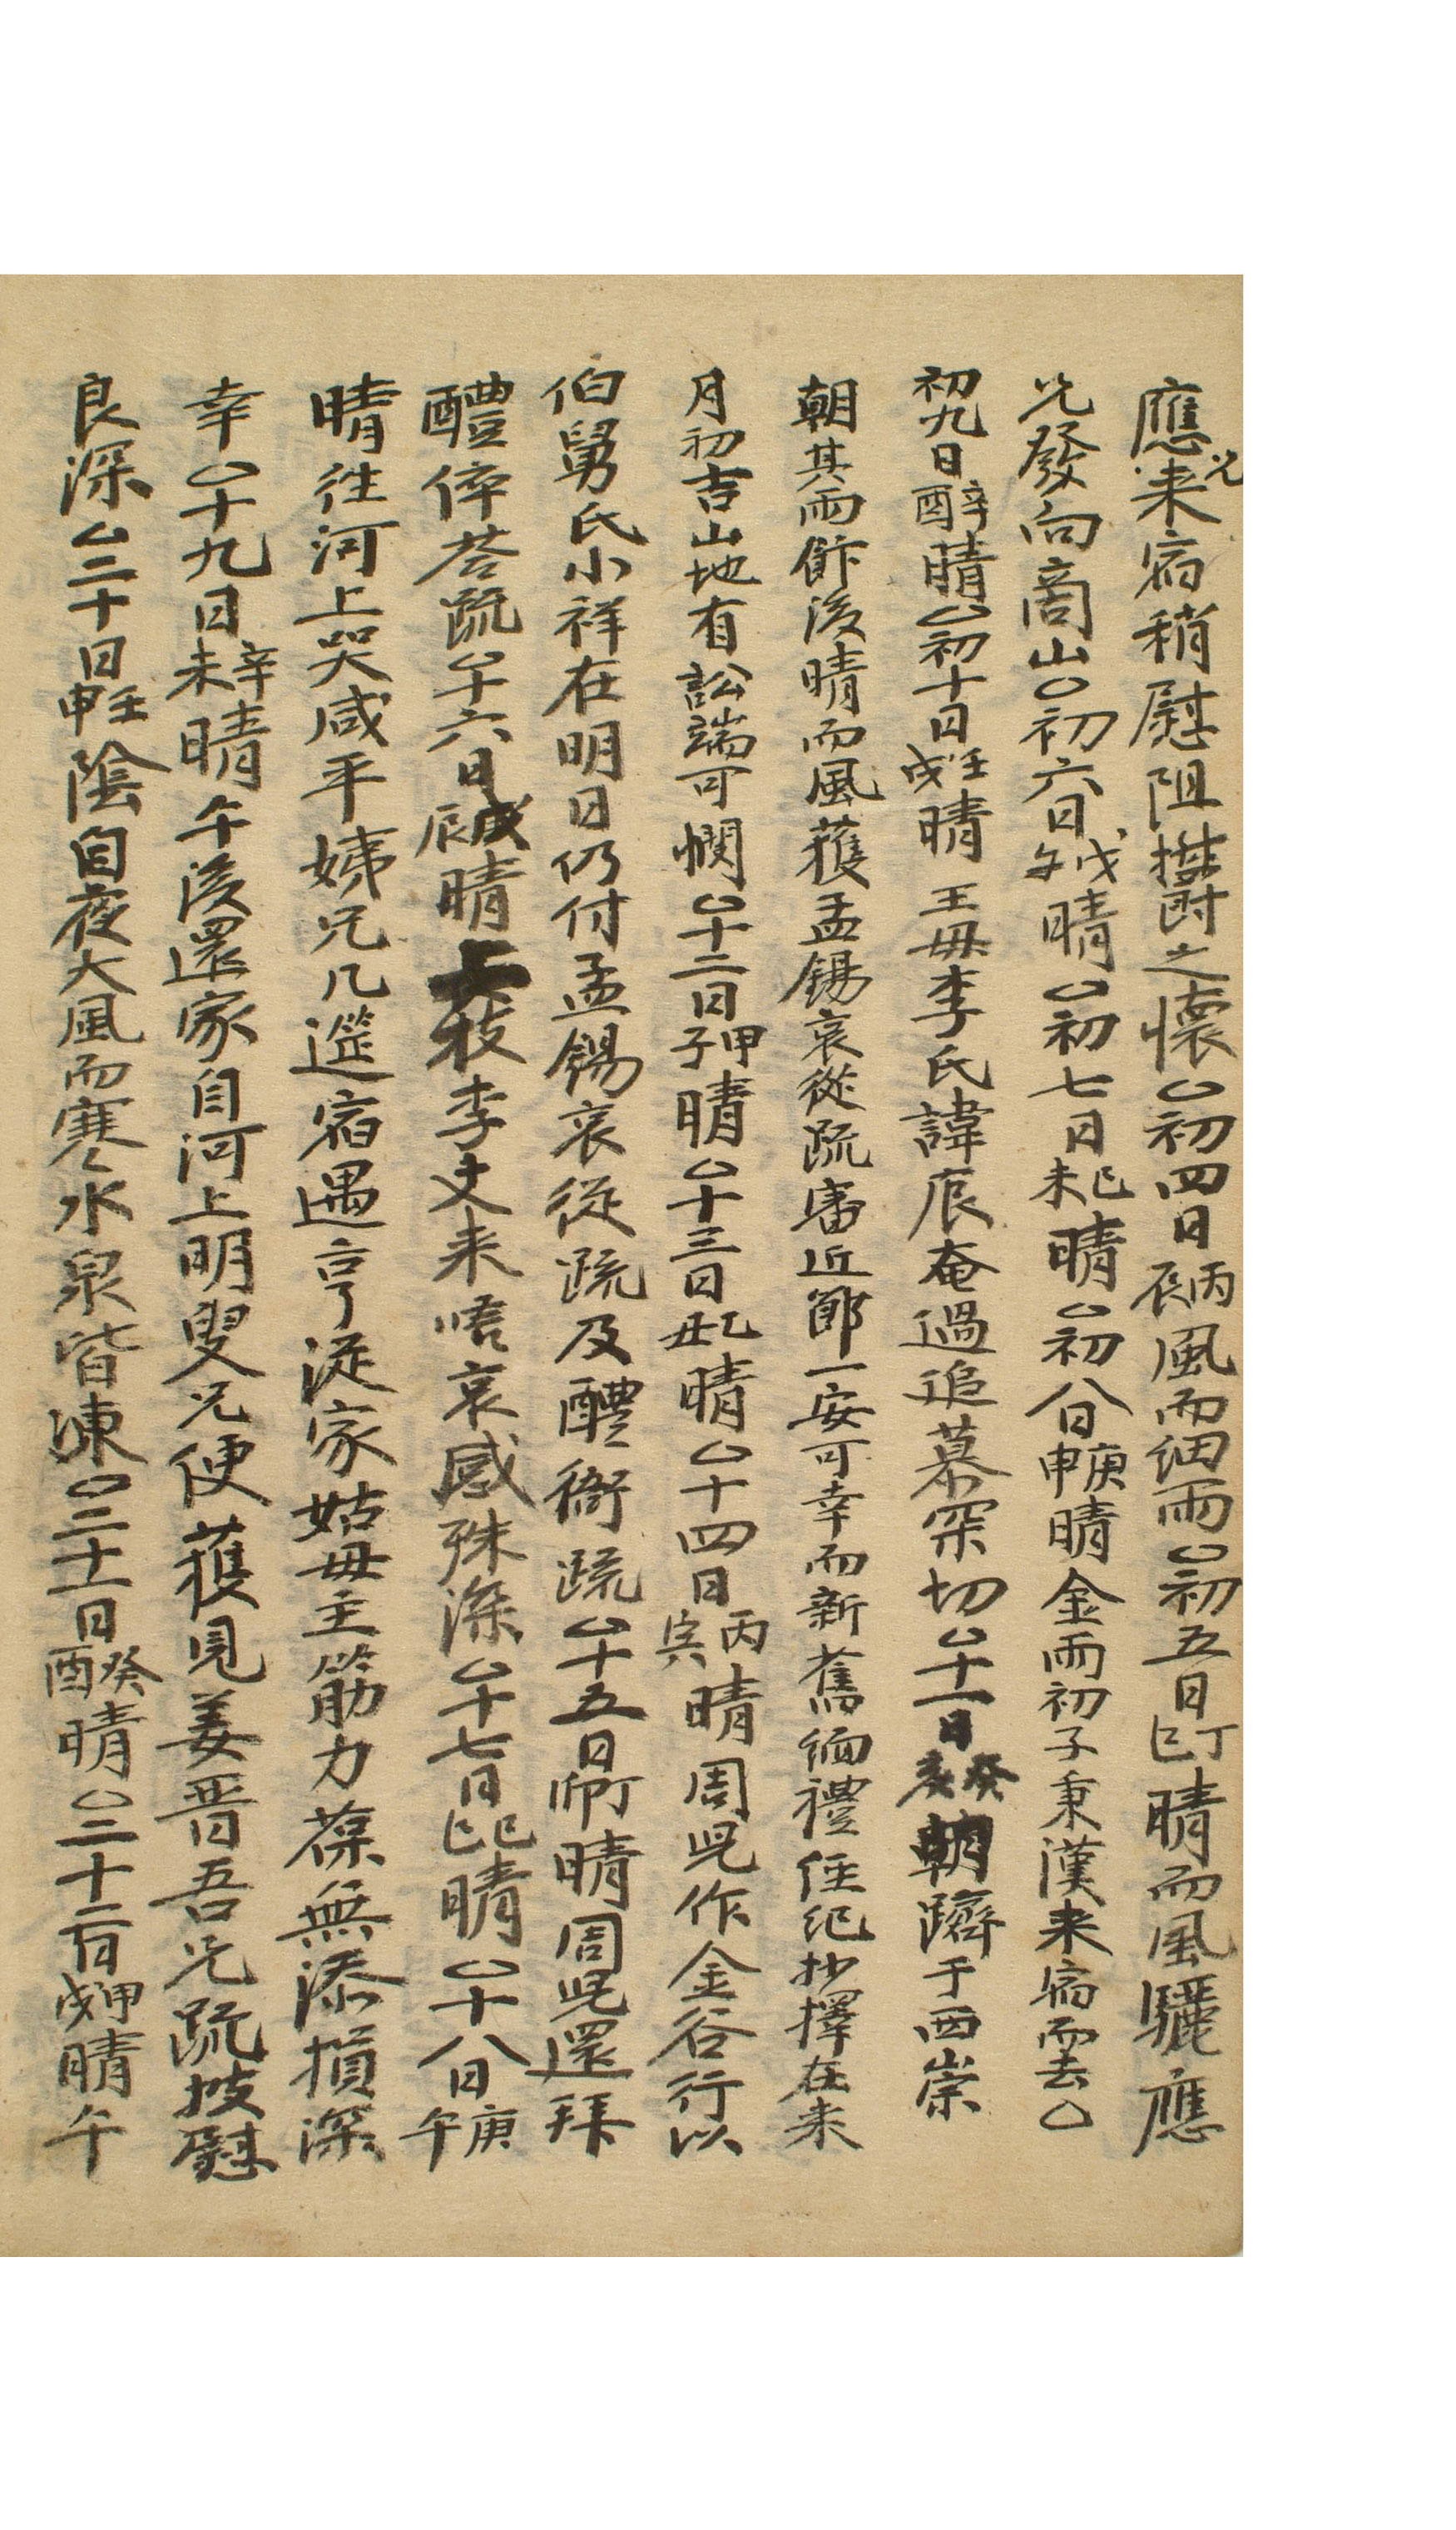 應兄来宿稍慰阻欝之懷○初四日丙辰風而細雨○初五日丁巳晴而風驪應
兄發向商山○初六日戊午晴○初七日己未晴○初八日庚申晴金而初子秉漢来宿而去○
初九日辛酉晴○初十日壬戌晴 王母李氏諱辰奄過追慕深切○十一日癸亥朝躋于西崇
朝其雨餙後晴而風獲孟錫哀從疏審近節一安可幸而新舊緬禮經紀抄擇在来
月初吉山地有訟端可憫○十二日甲子晴○十三日乙丑晴○十四日丙寅晴周兒作金谷行以
伯舅氏小祥在明日仍付孟錫哀從疏及醴衙疏○十五日丁卯晴周兒還拜
醴倅荅疏○十六日戊辰晴枝李丈来唁哀感殊深○十七日己巳晴○十八日庚午
晴往河上哭咸平姨兄几筵宿遇亨從家姑母主筋力葆無添損深
幸○十九日辛未晴午後還家自河上明叟兄便獲見姜晋吾兄疏披慰
良深○二十日壬申陰自夜大風而寒水泉皆凍○二十一日癸酉晴○二十二日甲戌晴午